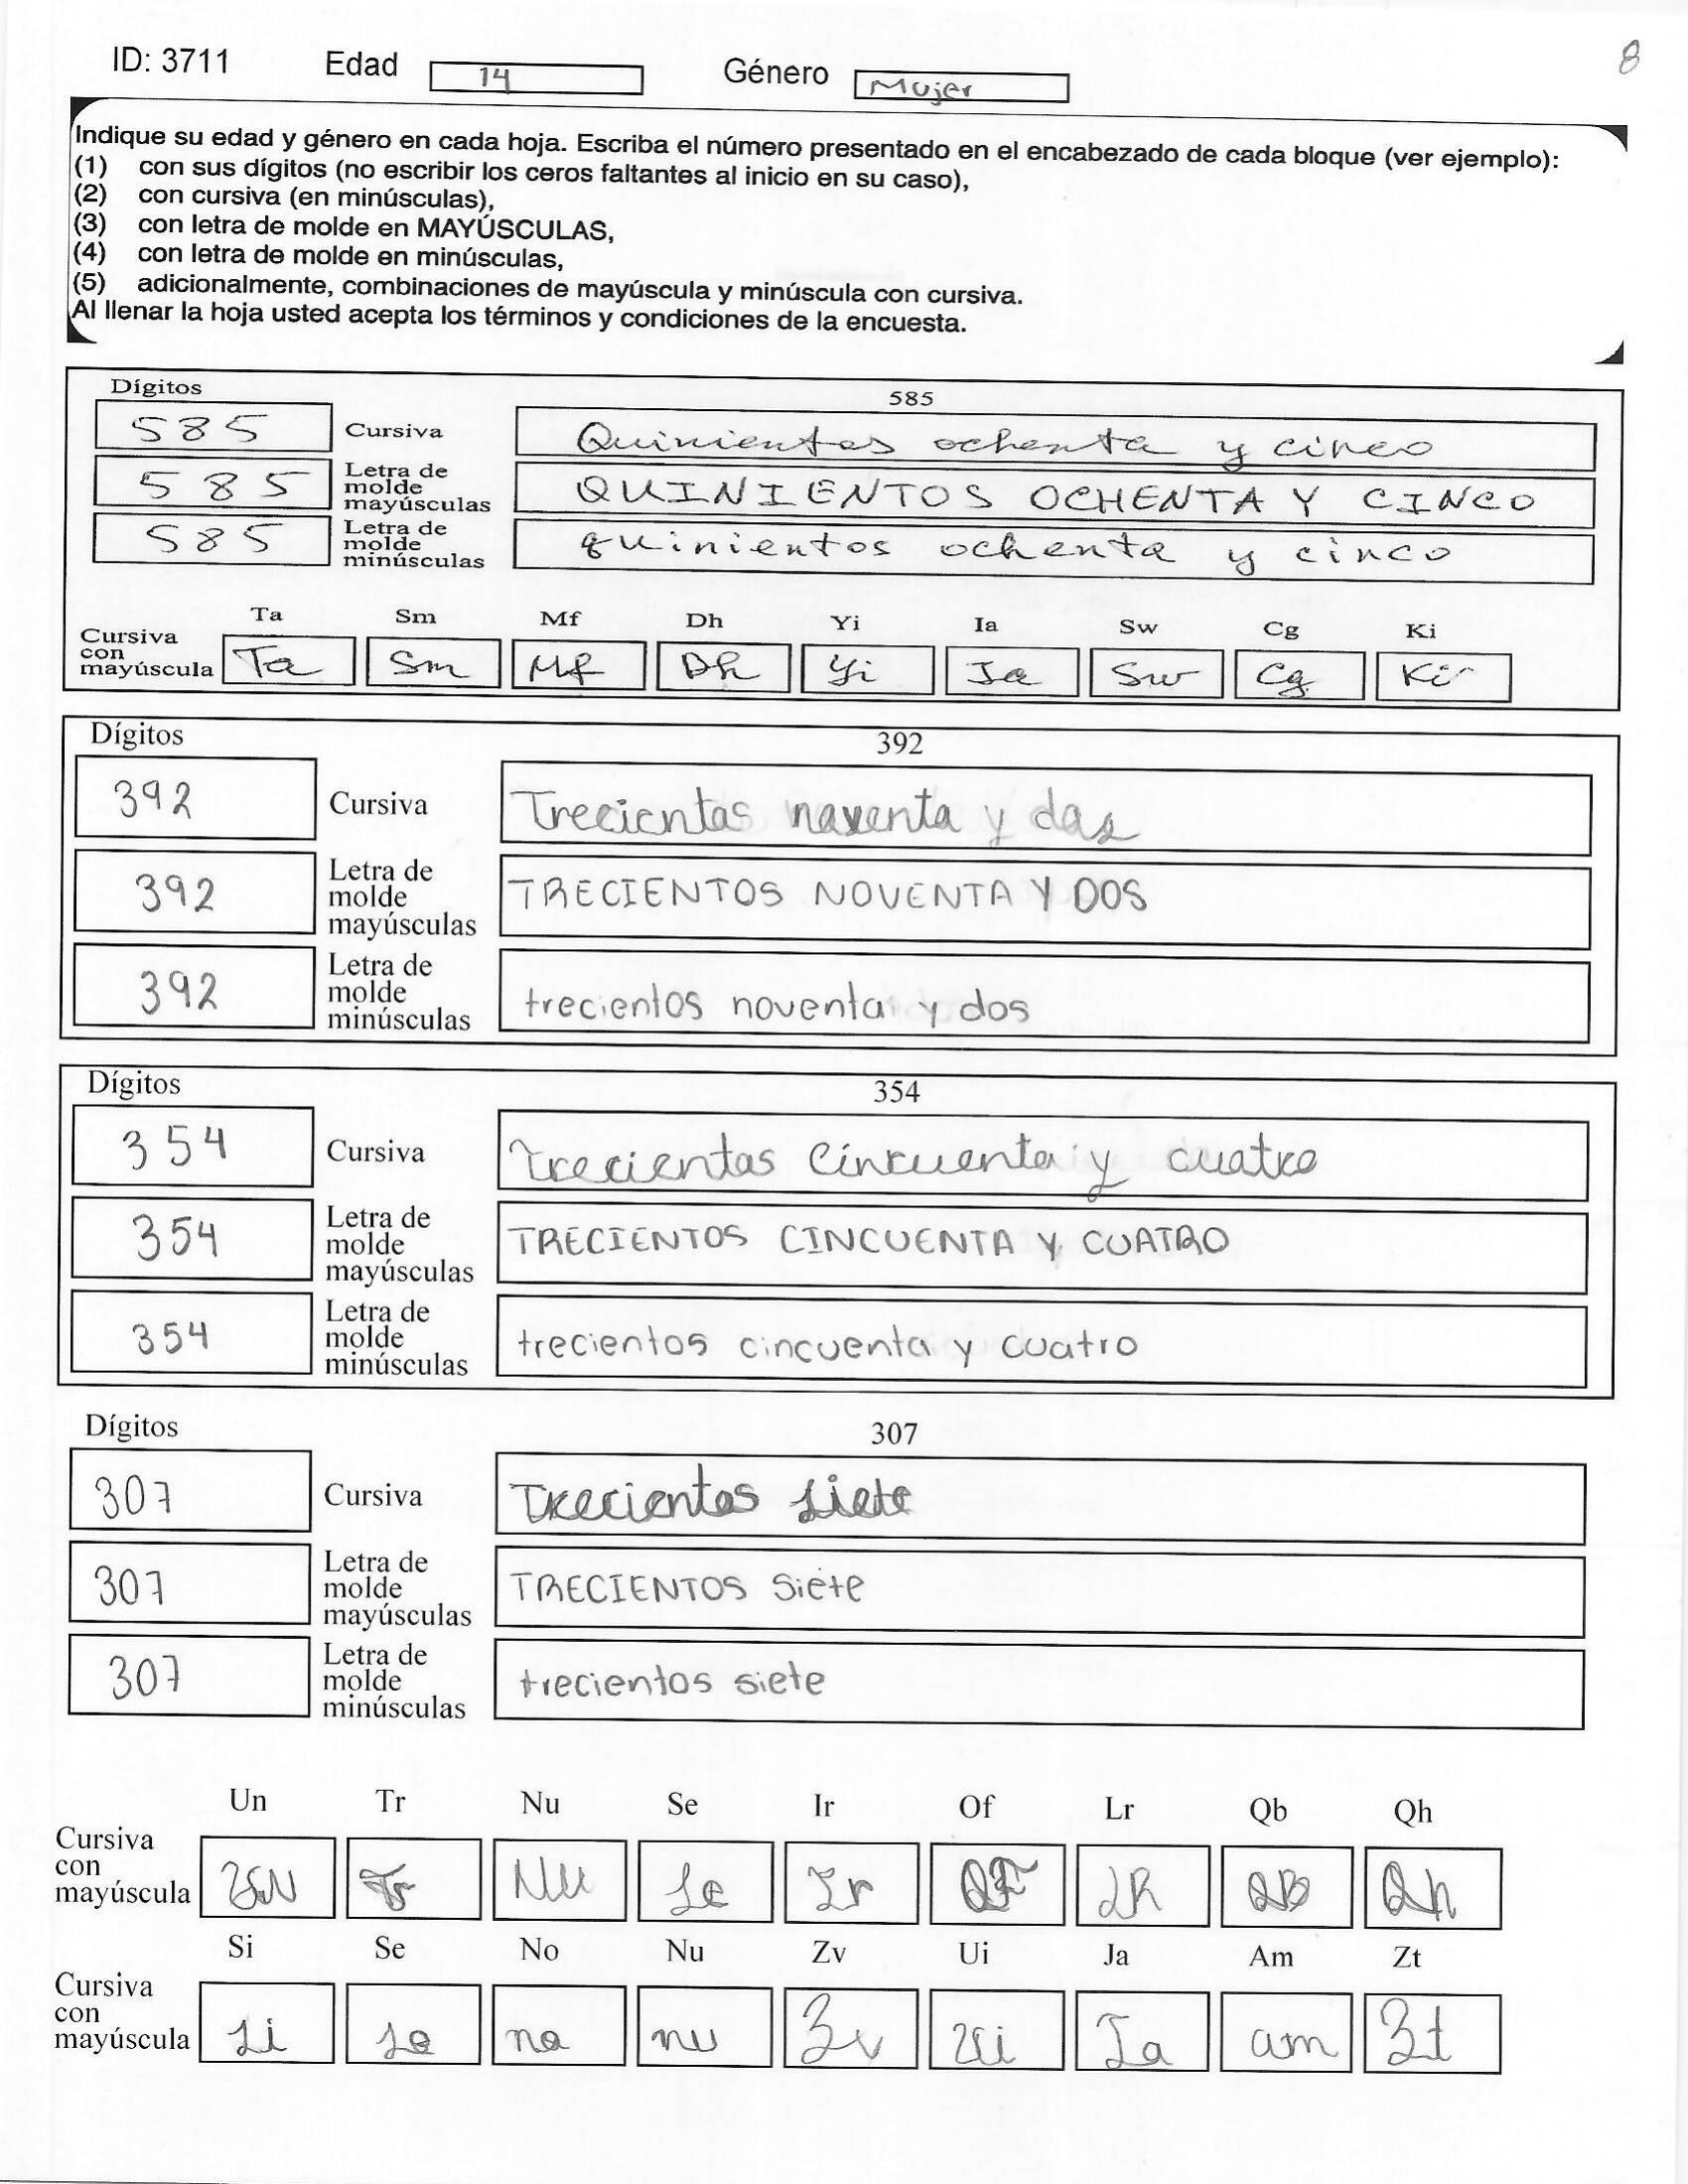 ID: 3711 Edad 14 Género Mujer 8
Indique su edad y género en cada hoja. Escriba el número presentado en el encabezado de cada bloque (ver ejemplo):
(1) con sus dígitos (no escribir los ceros faltantes al inicio en su caso),
(2) con cursiva (en minúsculas),
(3) con letra de molde en MAYÚSCULAS,
(4) con letra de molde en minúsculas,
(5) adicionalmente, combinaciones de mayúscula y minúscula con cursiva.
Al llenar la hoja usted acepta los términos y condiciones de la encuesta.
Dígitos 585
585 Cursiva Quinientos ochenta y cinco
585 Letra de molde mayúsculas QUINIENTOS OCHENTA Y CINCO
585 Letra de molde minúsculas quinientos ochenta y cinco
Ta Sm Mf Dh Yi Ia Sw Cg Ki
Cursiva con mayúscula Ta Sm Mf Dh Yi Ia Sw Cg Ki
Dígitos 392
392 Cursiva Trecientos noventa y dos
392 Letra de molde mayúsculas TRECIENTOS NOVENTA Y DOS
392 Letra de molde minúsculas trecientos noventa y dos
Dígitos 354
354 Cursiva Trecientos Cincuenta y cuatro
354 Letra de molde mayúsculas TRECIENTOS CINCUENTA Y CUATRO
354 Letra de molde minúsculas trecientos cincuenta y cuatro
Dígitos 307
307 Cursiva Trecientos siete
307 Letra de molde mayúsculas TRECIENTOS Siete
307 Letra de molde minúsculas trecientos siete
Un Tr Nu Se Ir Of Lr Qb Qh
Cursiva con mayúscula UN Tr Nu Se Ir OF LR QB Qh
Si Se No Nu Zv Ui Ja Am Zt
Cursiva con mayúscula Si Se no nu Zv Ui Ja am Zt